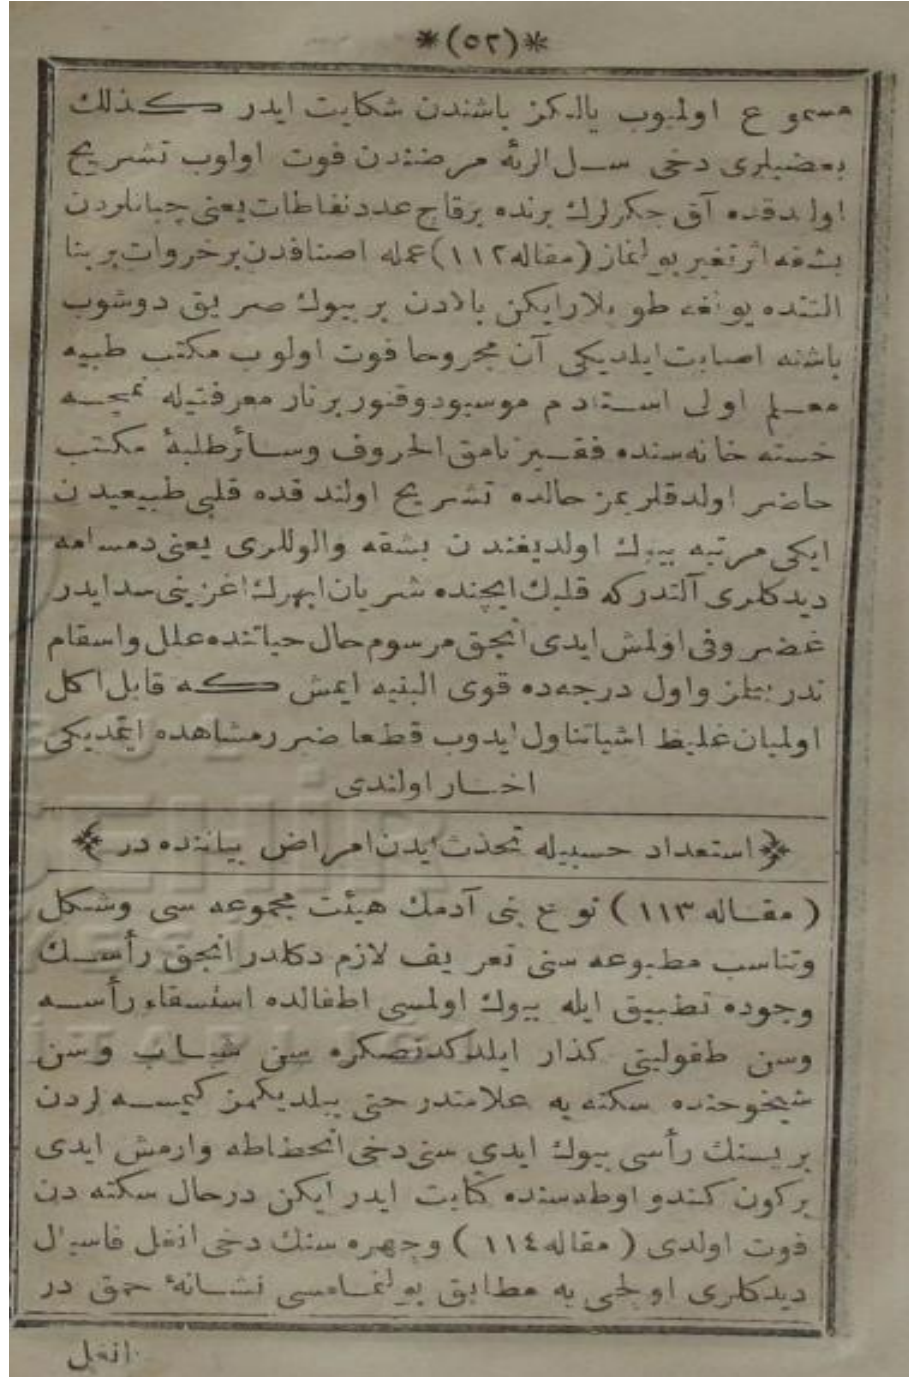 *(٥٢)*
مسموع اولميوب يالكز باشندن شكايت ايدر كذلك
بعضيلرى دخى سل الرئه مرضندن فوت اولوب تشريح
اولندقده آق جكرلرك برنده برقاچ عدد نفاطات يعنى چبانلردن
بشقه اثر تغير بولنماز (مقاله ١١٢) عمله اصنافدن بر خروات بر بنا
التنده يونغه طوپلارايكن بالادن بر بيوك صريق دوشوب
باشنه اصابت ايلديكى آن مجروحا فوت اولوب مكتب طبيه
معلم اولى استادم موسيو دوقتور برنار معرفتيله تمچه
خسته خانه سنده فقير نامق الحروف وسائر طلبۀ مكتب
حاضر اولدقلريمز حالده تشريح اولندقده قلبى طبيعيدن
ايكى مرتبه بيوك اولديغندن بشقه والوللرى يعنى دمسامه
ديدكلرى آلتدركه قلبك ايچنده شريان ابهرك اغزينى سد ايدر
غضروفى اولمش ايدى انجق مرسوم حال حياتنده علل واسقام
ندر بتلز واول درجه ده قوى البنيه ايمش كه قابل اكل
اولميان غليظ اشيا تناول ايدوب قطعا ضرر مشاهده ايتمديكى
اخبار اولندى
استعداد حسبيله تحدث ايدن امراض بياننده در
(مقاله ١١٣) نوع بنى آدمك هيئت مجموعه سى وشكل
وتناسب مطبوعه سنى تعريف لازم دكلدر انجق رأسك
وجوده تطبيق ايله بيوك اولمسى اطفالده استسقاء رأسه
وسن طفوليتى كذار ايلدكدنصكره سن شباب وسن
شيخوخنده سكته يه علامتدر حتى بيلديكمز كيمسه لردن
بريسنك رأسى بيوك ايدى سنى دخى انحطاطه وارمش ايدى
بركون كندو اوطه سنده كتابت ايدر ايكن درحال سكته دن
فوت اولدى (مقاله ١١٤) وچهره سنك دخى انغل فاسيال
ديدكلرى اولچى يه مطابق بولنمامسى نشانۀ حمق در
انغل